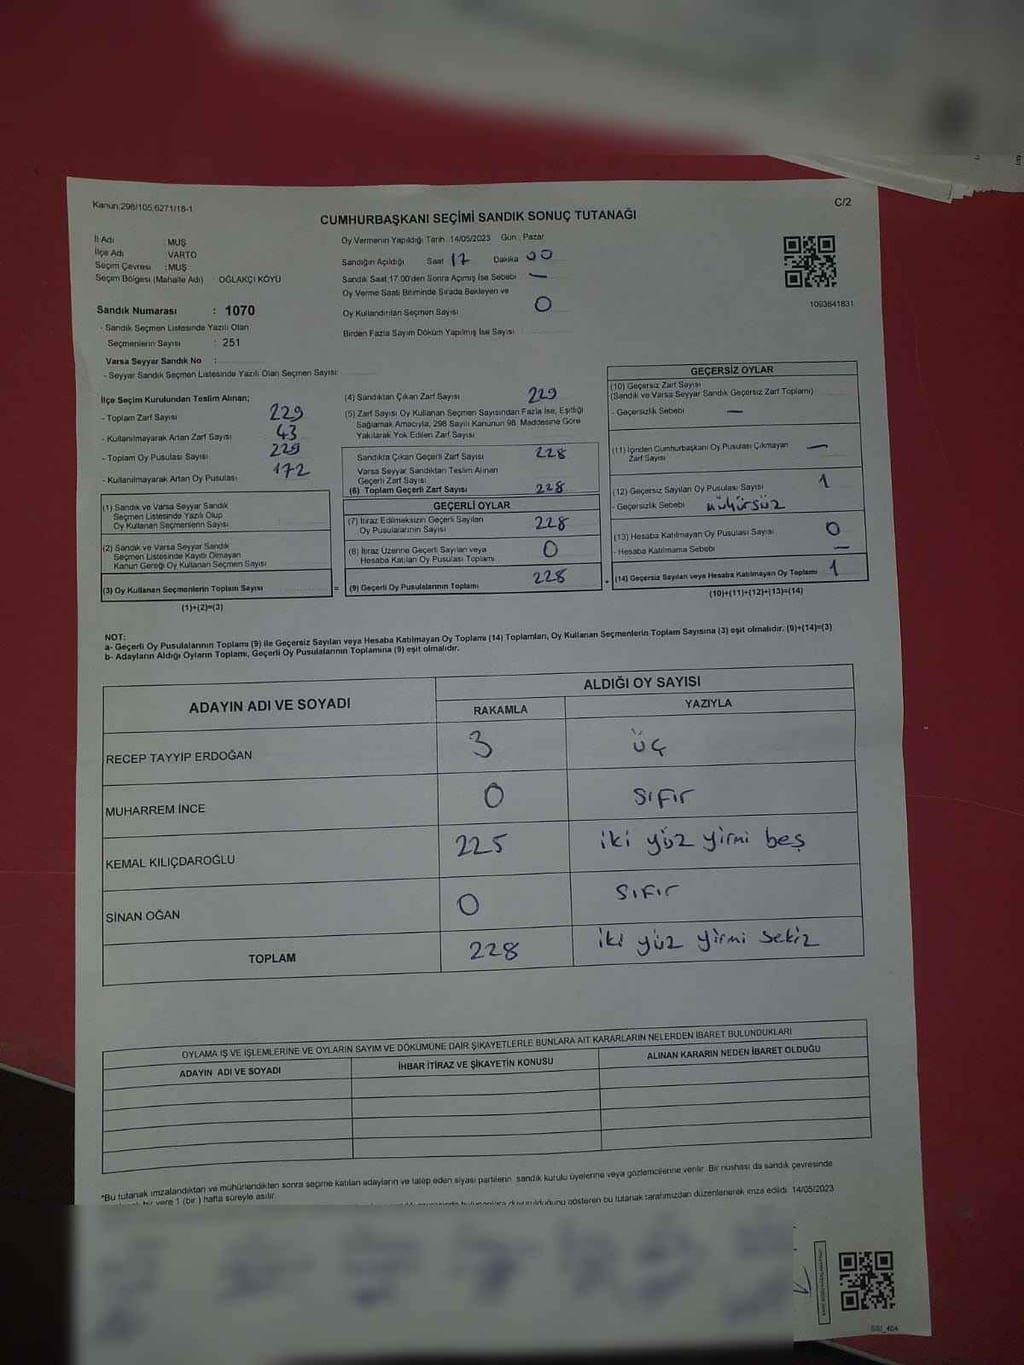 Kanun:298/105,6271/18-1
C/2
CUMHURBAŞKANI SEÇİMİ SANDIK SONUÇ TUTANAĞI
İl Adı : MUŞ
İlçe Adı : VARTO
Seçim Çevresi : MUŞ
Seçim Bölgesi (Mahalle Adı) OĞLAKÇI KÖYÜ
Sandık Numarası : 1070
- Sandık Seçmen Listesinde Yazılı Olan
Seçmenlerin Sayısı : 251
Varsa Seyyar Sandık No :
- Seyyar Sandık Seçmen Listesinde Yazılı Olan Seçmen Sayısı:
Oy Vermenin Yapıldığı Tarih :14/05/2023 Gün : Pazar
Sandığın Açıldığı Saat 17 Dakika 00
Sandık Saat 17.00'den Sonra Açımış İse Sebebi —
Oy Verme Saati Bitiminde Sırada Bekleyen ve
Oy Kullandırılan Seçmen Sayısı 0
Birden Fazla Sayım Döküm Yapılmış İse Sayısı :
1093641831
İlçe Seçim Kurulundan Teslim Alınan;
- Toplam Zarf Sayısı 229
- Kullanılmayarak Artan Zarf Sayısı 43
- Toplam Oy Pusulası Sayısı 229
- Kullanılmayarak Artan Oy Pusulası 172
(1) Sandık ve Varsa Seyyar Sandık
Seçmen Listesinde Yazılı Olup
Oy Kullanan Seçmenlerin Sayısı
(2) Sandık ve Varsa Seyyar Sandık
Seçmen Listesinde Kayıtlı Olmayan
Kanun Gereği Oy Kullanan Seçmen Sayısı
(3) Oy Kullanan Seçmenlerin Toplam Sayısı =
(1)+(2)=(3)
(4) Sandıktan Çıkan Zarf Sayısı 229
(5) Zarf Sayısı Oy Kullanan Seçmen Sayısından Fazla İse, Eşitliği
Sağlamak Amacıyla, 298 Sayılı Kanunun 98. Maddesine Göre
Yakılarak Yok Edilen Zarf Sayısı
Sandıkta Çıkan Geçerli Zarf Sayısı 228
Varsa Seyyar Sandıktan Teslim Alınan
Geçerli Zarf Sayısı
(6) Toplam Geçerli Zarf Sayısı 228
GEÇERLİ OYLAR
(7) İtiraz Edilmeksizin Geçerli Sayılan
Oy Pusulalarının Sayısı 228
(8) İtiraz Üzerine Geçerli Sayılan veya
Hesaba Katılan Oy Pusulası Toplamı 0
(9) Geçerli Oy Pusulalarının Toplamı 228 +
GEÇERSİZ OYLAR
(10) Geçersiz Zarf Sayısı
(Sandık ve Varsa Seyyar Sandık Geçersiz Zarf Toplamı)
- Geçersizlik Sebebi —
(11) İçinden Cumhurbaşkanı Oy Pusulası Çıkmayan
Zarf Sayısı —
(12) Geçersiz Sayılan Oy Pusulası Sayısı 1
- Geçersizlik Sebebi mühürsüz
(13) Hesaba Katılmayan Oy Pusulası Sayısı 0
- Hesaba Katılmama Sebebi —
(14) Geçersiz Sayılan veya Hesaba Katılmayan Oy Toplamı 1
(10)+(11)+(12)+(13)=(14)
NOT:
a- Geçerli Oy Pusulalarının Toplamı (9) ile Geçersiz Sayılan veya Hesaba Katılmayan Oy Toplamı (14) Toplamları, Oy Kullanan Seçmenlerin Toplam Sayısına (3) eşit olmalıdır. (9)+(14)=(3)
b- Adayların Aldığı Oyların Toplamı, Geçerli Oy Pusulalarının Toplamına (9) eşit olmalıdır.
ADAYIN ADI VE SOYADI ALDIĞI OY SAYISI
RAKAMLA YAZIYLA
RECEP TAYYİP ERDOĞAN 3 üç
MUHARREM İNCE 0 sıfır
KEMAL KILIÇDAROĞLU 225 iki yüz yirmi beş
SİNAN OĞAN 0 sıfır
TOPLAM 228 iki yüz yirmi sekiz
OYLAMA İŞ VE İŞLEMLERİNE VE OYLARIN SAYIM VE DÖKÜMÜNE DAİR ŞİKAYETLERLE BUNLARA AİT KARARLARIN NELERDEN İBARET BULUNDUKLARI
ADAYIN ADI VE SOYADI İHBAR İTİRAZ VE ŞİKAYETİN KONUSU ALINAN KARARIN NEDEN İBARET OLDUĞU
*Bu tutanak imzalandıktan ve mühürlendikten sonra seçime katılan adayların ve talep eden siyasi partilerin sandık kurulu üyelerine veya gözlemcilerine verilir. Bir nüshası da sandık çevresinde
bir yere 1 (bir) hafta süreyle asılır.
bulunduğunu gösteren bu tutanak tarafımızdan düzenlenerek imza edildi. 14/05/2023